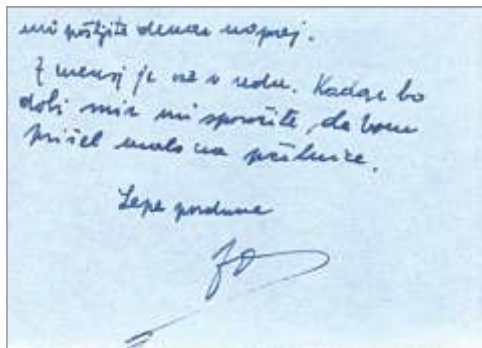 mi pošljite denar naprej.
Z menoj je vse v redu. Kadar bo
dobi mir mi sporočite, da bom
prišel malo na počitnice.
Lepe pozdrave